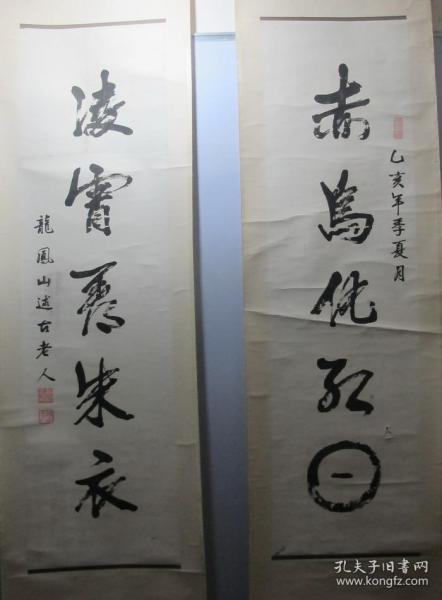 赤紅日
乙亥年季夏月
凌霄朱衣
龍鳳山述古老人
孔夫子旧书网
www.kongfz.com